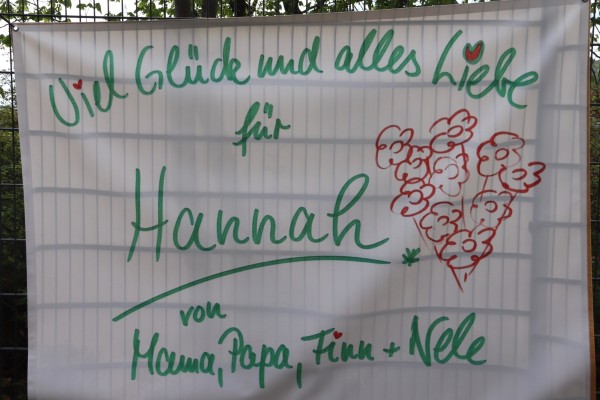 Viel Glück und alles Liebe
für
Hannah
von
Mama, Papa, Finn + Nele